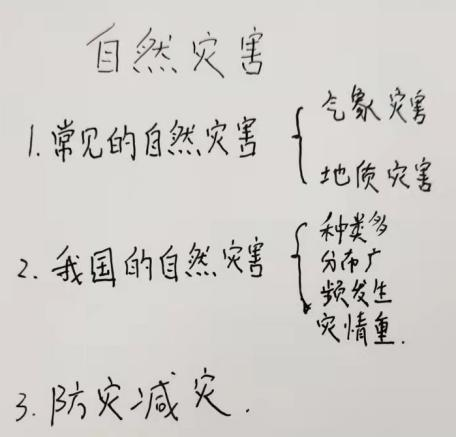 自然灾害
1.常见的自然灾害
气象灾害
地质灾害
2.我国的自然灾害
种类多
分布广
频发生
灾情重.
3.防灾减灾.